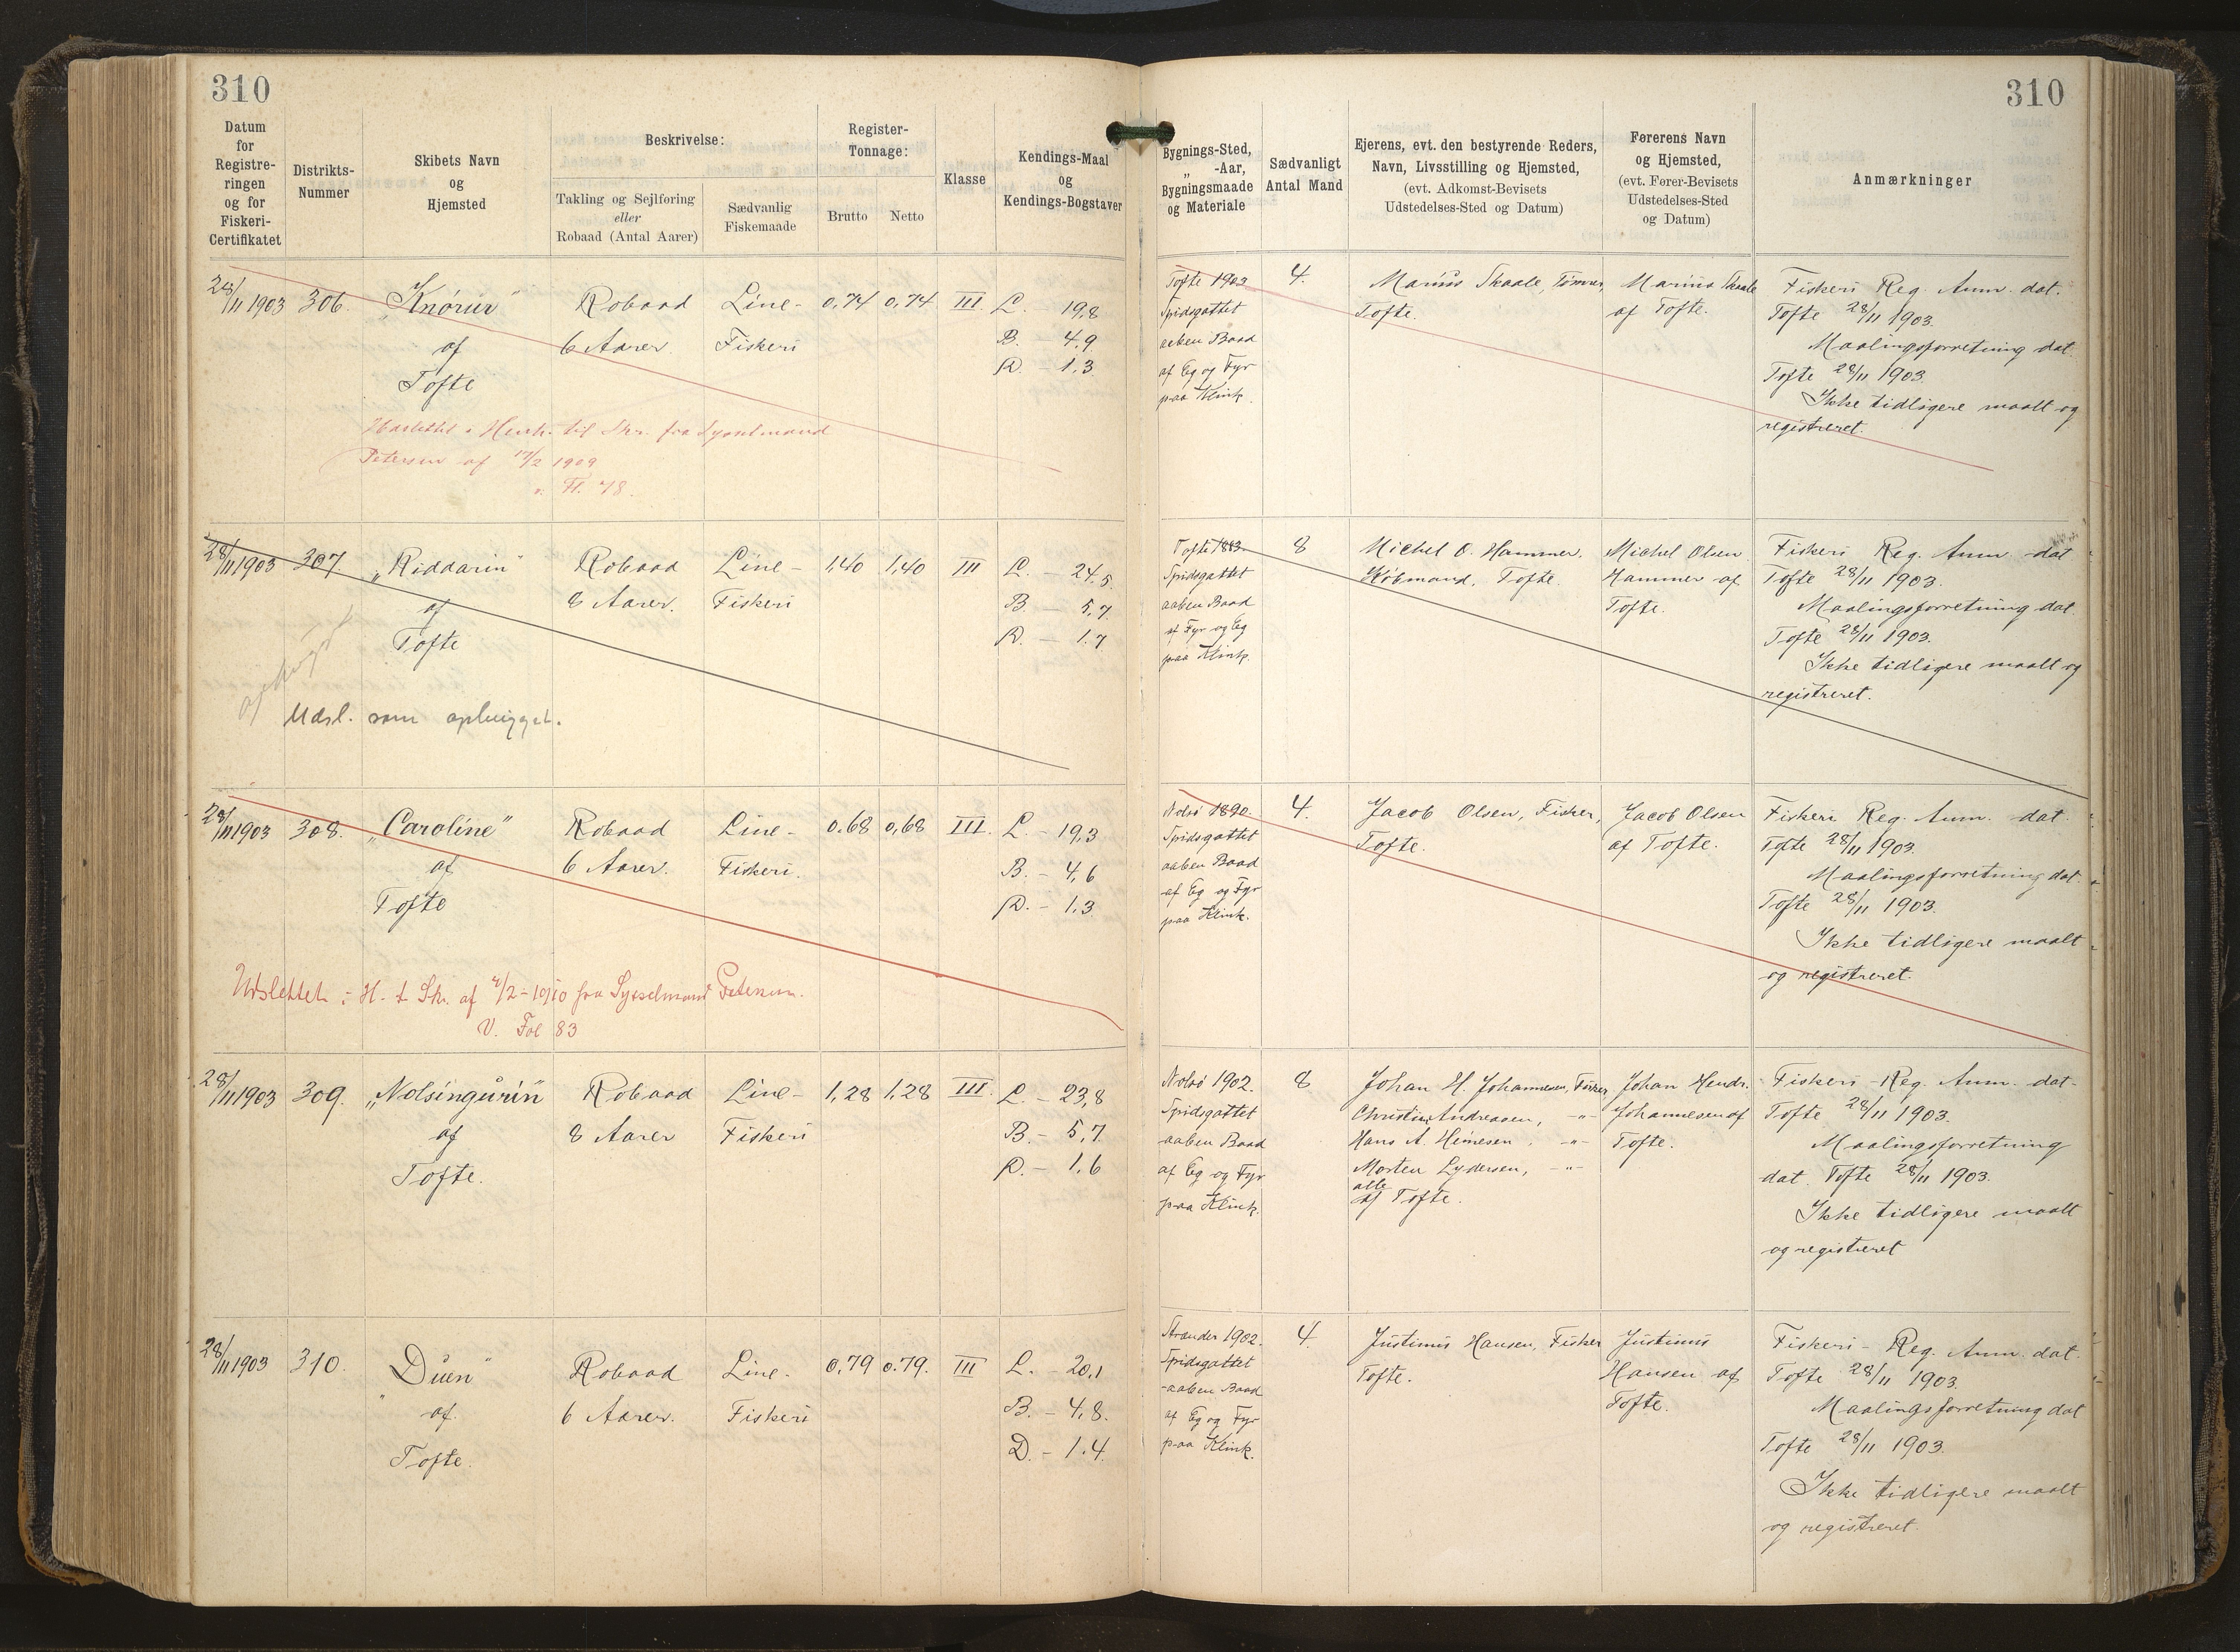 310
310
Datum
for
Registre-
ringen
og for
Fiskeri-
Certifikatet
Distrikts-
Nummer
Skibets Navn
og
Hjemsted
Beskrivelse:
Takling og Sejlføring
eller
Robaad (Antal Aarer)
Sædvanlig
Fiskemaade
Register-
Tonnage:
Brutto
Netto
Klasse
Kendings-Maal
og
Kendings-Bogstaver
Bygnings-Sted,
„ -Aar,
Bygningsmaade
og Materiale
Sædvanligt
Antal Mand
Ejerens, evt. den bestyrende Reders,
Navn, Livsstilling og Hjemsted,
(evt. Adkomst-Bevisets
Udstedelses-Sted og Datum)
Førerens Navn
og Hjemsted,
(evt. Fører-Bevisets
Udstedelses-Sted
og Datum)
Anmærkninger
28/11 1903
306.
„Knørur“
af
Tofte
Robaad
6 Aarer.
Line-
Fiskeri
0,74
0,74
III.
L. - 19,8
B. 4,9
D. - 1,3
Tofte 1903
Spidsgattet
aaben Baad
af Eg og Fyr
paa Klink.
4.
Marius Skaale,
Tofte.
Marius Skaale
af Tofte.
Fiskeri Reg. Anm. dat.
Tofte 28/11 1903.
Maalingsforretning dat.
Tofte 28/11 1903.
Ikke tidligere maalt og
registreret.
til Skr. fra Sysselmand
Petersen af 17/2 1909
v. Fl. 78.
28/11 1903
307.
„Riddarin“
af
Tofte
Robaad
8 Aarer.
Line-
Fiskeri
1,40
1,40
III
L. - 24,5
B. - 5,7
D. - 1.7
Tofte 1883.
Spidsgattet
aaben Baad
af Fyr og Eg
paa Klink.
8
Michel O. Hammer,
Købmand, Tofte.
Michel Olsen
Hammer af
Tofte.
Fiskeri Reg. Anm. dat
Tofte 28/11 1903.
Maalingsforretning dat.
Tofte 28/11 1903.
Ikke tidligere maalt og
registreret.
ophugst
Udsl. som ophugget.
28/11 1903
308.
„Caroline“
af
Tofte
Robaad
6 Aarer.
Line-
Fiskeri.
0.68
0,68
III.
L. - 19,3
B. - 4,6
D. - 1,3
Nolsø 1890.
Spidsgattet
aaben Baad
af Eg og Fyr
paa Klink.
4.
Jacob Olsen, Fisker,
Tofte.
Jacob Olsen
af Tofte.
Fiskeri Reg. Anm. dat.
Tofte 28/11 1903.
Maalingsforretning dat.
Tofte 28/11 1903.
Ikke tidligere maalt
og registreret.
Udslettet i H. t. Skr. af /2-1910 fra Sysselmand Petersen.
V. Fol 83
28/11 1903
309.
„Nolsingurin“
af
Tofte.
Robaad
8 Aarer
Line-
Fiskeri
1,28
1,28
III.
L. - 23,8
B. - 5,7
D. - 1,6
Nolsø 1902.
Spidsgattet
aaben Baad
af Eg og Fyr
paa Klink.
8
Johan H. Johannesen, Fisker
Christian Andreasen, -"-
Hans A. Heinesen, -"-
Morten Lydersen, -"-
alle
af Tofte.
Johan Hendr.
Johannesen af
Tofte.
Fiskeri-Reg. Anm. dat-
Tofte 28/11 1903.
Maalingsforretning
dat. Tofte 28/11 1903.
Ikke tidligere maalt
og registreret
28/11 1903
310.
„Duen“
af
Tofte.
Robaad
6 Aarer.
Line-
Fiskeri
0,79
0.79.
III
L. - 20,1
B. - 4,8.
D. - 1.4
Strander 1902.
Spidsgattet
aaben Baad
af Eg og Fyr
paa Klink.
4.
Justinus Hansen, Fisker
Tofte.
Justinus
Hansen af
Tofte.
Fiskeri-Reg. Anm. dat.
Tofte 28/11 1903.
Maalingsforretning dat
Tofte 28/11 1903.
Ikke tidligere maalt
og registreret.